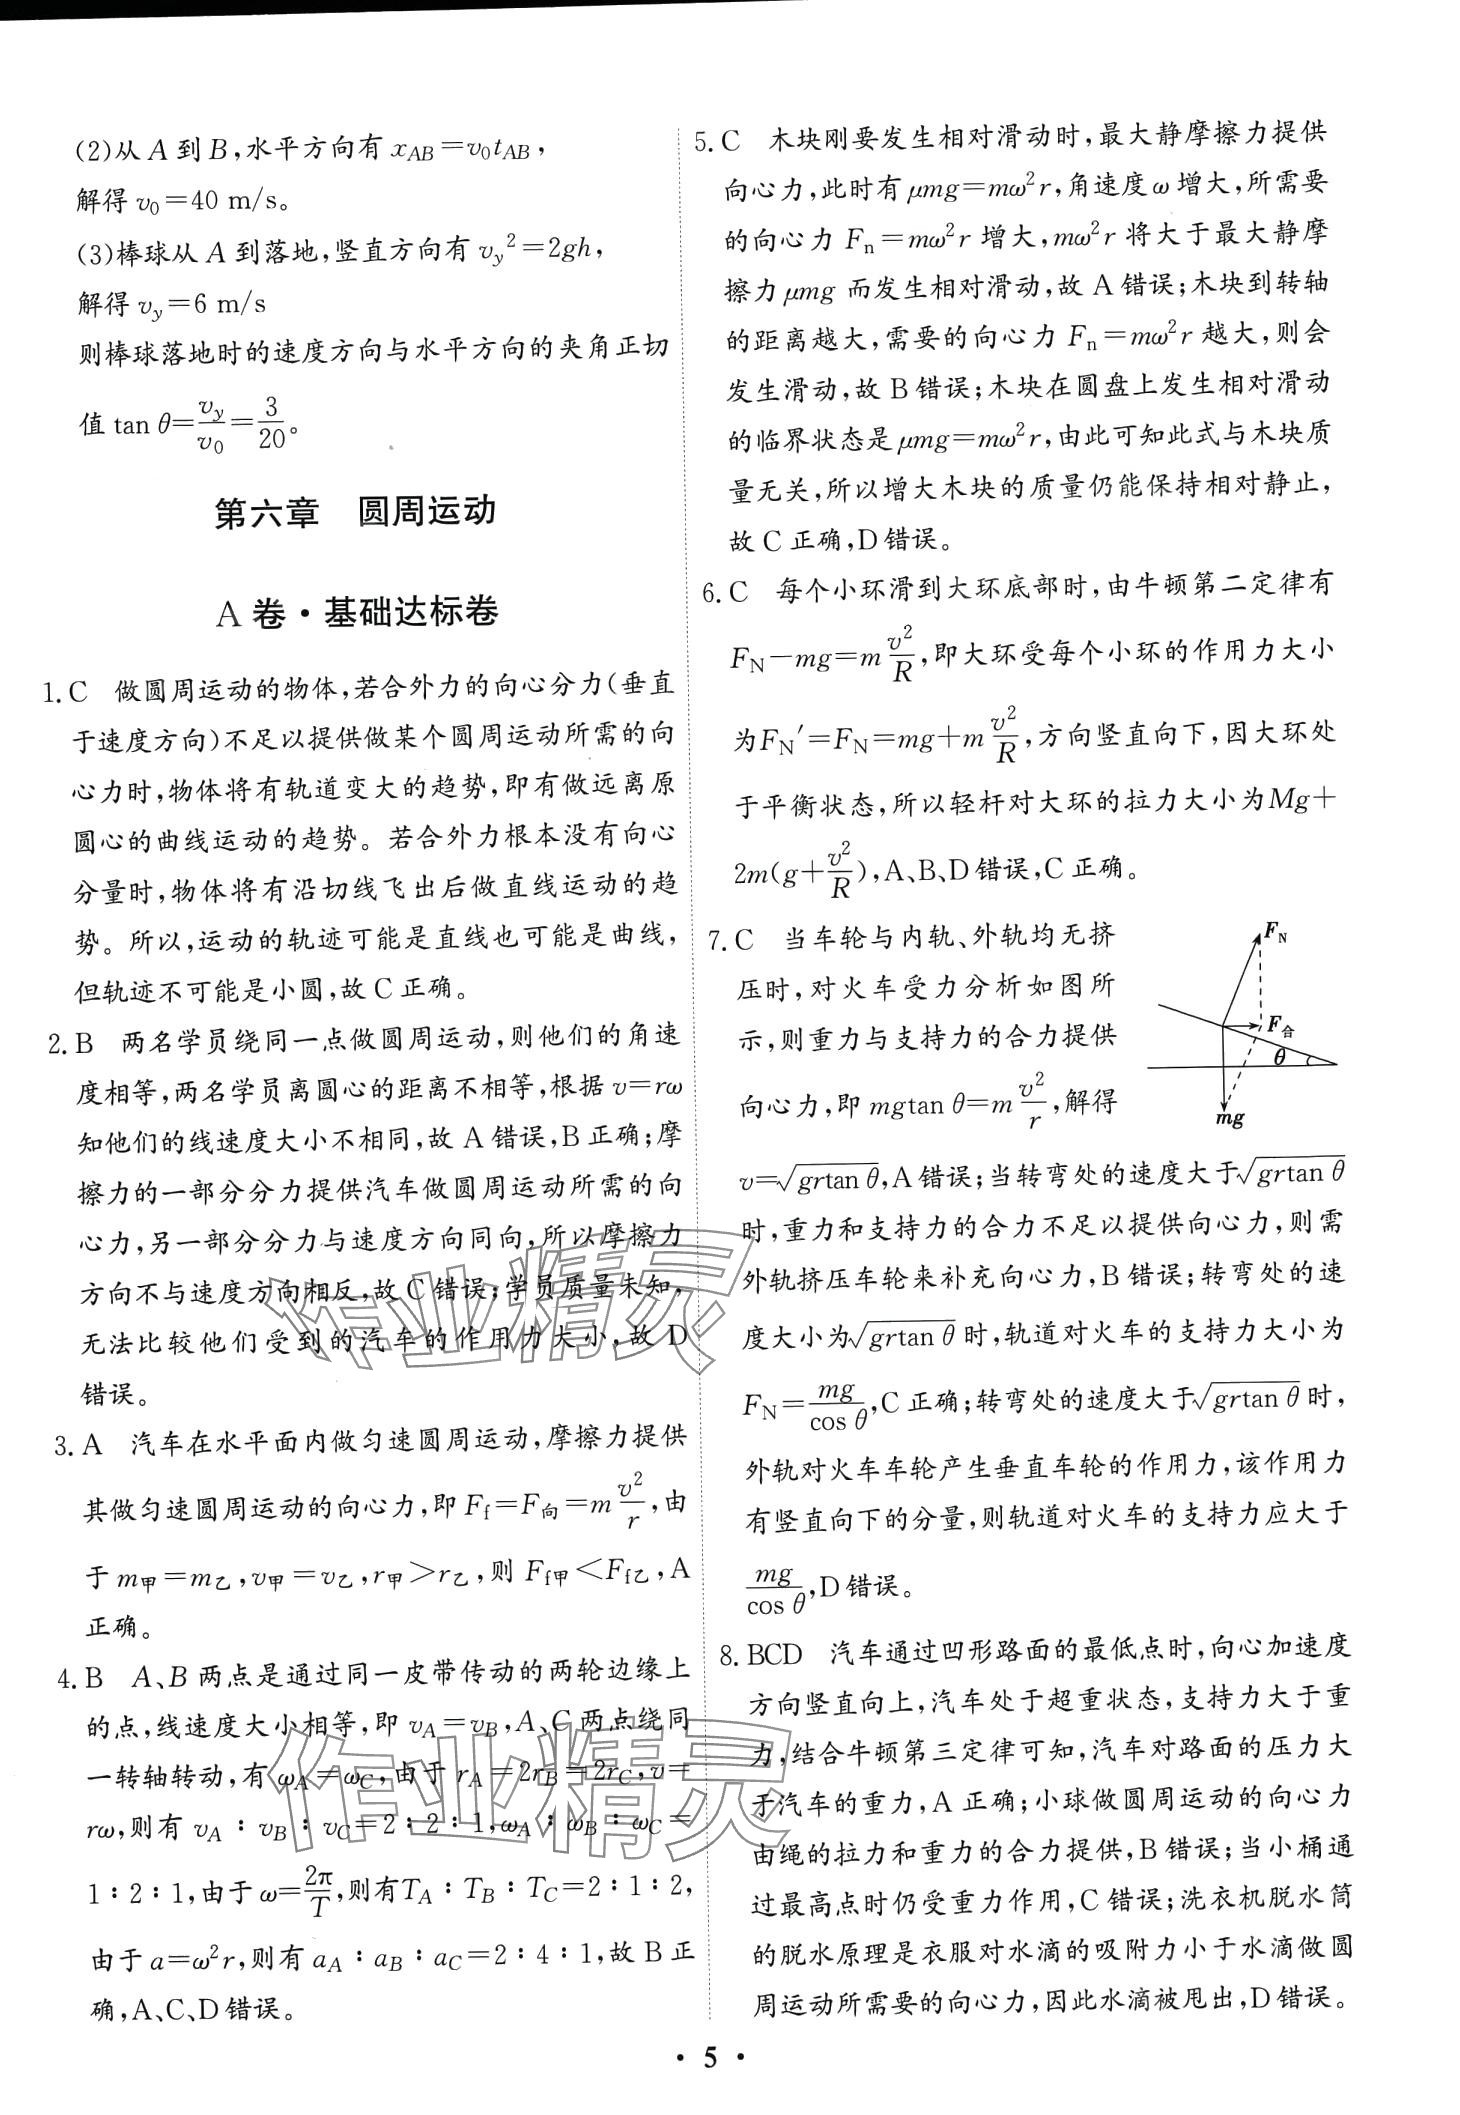 (2)从 A 到 B,水平方向有 x_AB=v₀t_AB,
解得 v₀=40 m/s。
(3)棒球从 A 到落地,竖直方向有 v_y²=2gh,
解得 v_y=6 m/s
则棒球落地时的速度方向与水平方向的夹角正切
值 tan θ=v_y/v₀=3/20。
第六章 圆周运动
A 卷·基础达标卷
1.C 做圆周运动的物体,若合外力的向心分力(垂直
于速度方向)不足以提供做某个圆周运动所需的向
心力时,物体将有轨道变大的趋势,即有做远离原
圆心的曲线运动的趋势。若合外力根本没有向心
分量时,物体将有沿切线飞出后做直线运动的趋
势。所以,运动的轨迹可能是直线也可能是曲线,
但轨迹不可能是小圆,故 C 正确。
2.B 两名学员绕同一点做圆周运动,则他们的角速
度相等,两名学员离圆心的距离不相等,根据 v=rω
知他们的线速度大小不相同,故 A 错误,B 正确;摩
擦力的一部分分力提供汽车做圆周运动所需的向
心力,另一部分分力与速度方向同向,所以摩擦力
方向不与速度方向相反,故 C 错误;学员质量未知,
无法比较他们受到的汽车的作用力大小,故 D
错误。
3.A 汽车在水平面内做匀速圆周运动,摩擦力提供
其做匀速圆周运动的向心力,即 F_f=F_向=m v²/r,由
于 m_甲=m_乙,v_甲=v_乙,r_甲>r_乙,则 F_f甲<F_f乙,A
正确。
4.B A、B 两点是通过同一皮带传动的两轮边缘上
的点,线速度大小相等,即 v_A=v_B,A、C 两点绕同
一转轴转动,有 ω_A=ω_C,由于 r_A=2r_B=2r_C,v=
rω,则有 v_A∶v_B∶v_C=2∶2∶1,ω_A∶ω_B∶ω_C=
1∶2∶1,由于 ω=2π/T,则有 T_A∶T_B∶T_C=2∶1∶2,
由于 a=ω²r,则有 a_A∶a_B∶a_C=2∶4∶1,故 B 正
确,A、C、D 错误。
5.C 木块刚要发生相对滑动时,最大静摩擦力提供
向心力,此时有 μmg=mω²r,角速度 ω 增大,所需要
的向心力 F_n=mω²r 增大,mω²r 将大于最大静摩
擦力 μmg 而发生相对滑动,故 A 错误;木块到转轴
的距离越大,需要的向心力 F_n=mω²r 越大,则会
发生滑动,故 B 错误;木块在圆盘上发生相对滑动
的临界状态是 μmg=mω²r,由此可知此式与木块质
量无关,所以增大木块的质量仍能保持相对静止,
故 C 正确,D 错误。
6.C 每个小环滑到大环底部时,由牛顿第二定律有
F_N−mg=m v²/R,即大环受每个小环的作用力大小
为F_N′=F_N=mg+m v²/R,方向竖直向下,因大环处
于平衡状态,所以轻杆对大环的拉力大小为Mg+
2m(g+v²/R),A、B、D 错误,C 正确。
7.C 当车轮与内轨、外轨均无挤
压时,对火车受力分析如图所
示,则重力与支持力的合力提供
向心力,即 mgtan θ=m v²/r,解得
F_N
F_合
θ
mg
v=√(grtan θ),A 错误;当转弯处的速度大于√(grtan θ)
时,重力和支持力的合力不足以提供向心力,则需
外轨挤压车轮来补充向心力,B 错误;转弯处的速
度大小为√(grtan θ)时,轨道对火车的支持力大小为
F_N=mg/cos θ,C 正确;转弯处的速度大于√(grtan θ)时,
外轨对火车车轮产生垂直车轮的作用力,该作用力
有竖直向下的分量,则轨道对火车的支持力应大于
mg/cos θ,D 错误。
8.BCD 汽车通过凹形路面的最低点时,向心加速度
方向竖直向上,汽车处于超重状态,支持力大于重
力,结合牛顿第三定律可知,汽车对路面的压力大
于汽车的重力,A 正确;小球做圆周运动的向心力
由绳的拉力和重力的合力提供,B 错误;当小桶通
过最高点时仍受重力作用,C 错误;洗衣机脱水筒
的脱水原理是衣服对水滴的吸附力小于水滴做圆
周运动所需要的向心力,因此水滴被甩出,D 错误。
作业精灵
作业精灵
· 5 ·